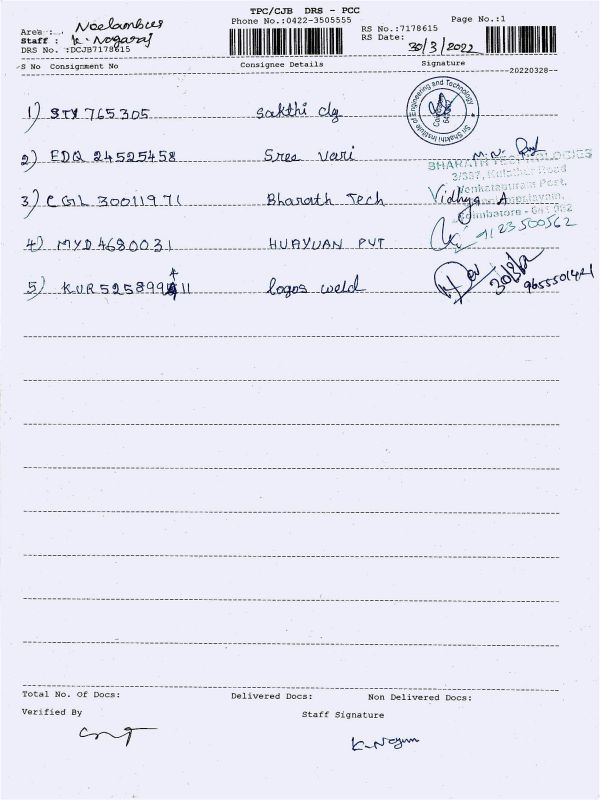 TPC/CJB DRS - PCC
Area : Neelambur Phone No.:0422-3505555 RS No.:7178615 Page No.:1
Staff : K. Nagaraj RS Date: 30/3/2022
DRS No. :DCJB7178615
S No Consignment No Consignee Details Signature
20220328
1) STY 765305 Sakthi clg
Sri Shakthi Institute of Engineering and Technology
2) EDQ 24525458 Sree Vari
BHARATH TECHNOLOGIES
3/337, Kulathur Road
3) CGL 30011971 Bharath Tech Vidhya A
Venkatapuram Post,
Coimbatore - 641 062
4) MYD4690031 HUAYUAN PVT 9123500562
5) KUR525899 11 logos weld 30/3/22 9655501421
Total No. Of Docs: Delivered Docs: Non Delivered Docs:
Verified By Staff Signature